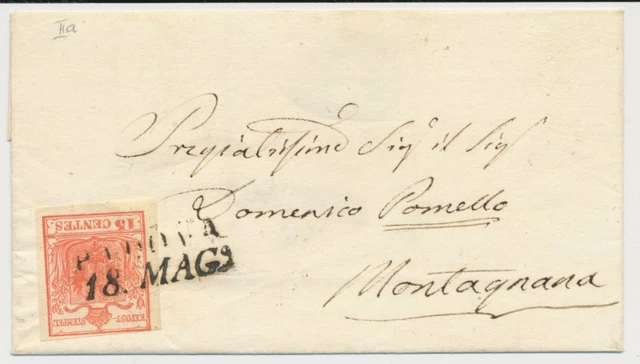 IIa
Pregiatissimo Sigr il Sigr
Domenico Pomello
Montagnana
PADOVA
18. MAG
15 CENTES.
KKPOST-STEMPEL